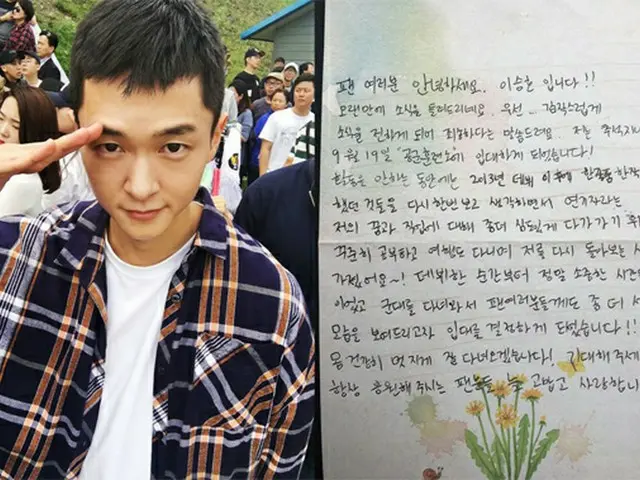 팬 여러분 안녕하세요. 이승호 입니다!!
오래만에 소식을 들려드리네요. 우선... 갑작스럽게
소식을 전하게 되어 죄송하다는 말씀드려요. 저는 추석지나
9월 19일 "공군훈련소"에 입대하게 되었습니다!
활동을 안하는 동안에는 2013년 데뷔 이후에 한작품 한작
했던 것들을 다시한번 보고 생각하면서 연기자라는
저의 꿈과 직업에 대해 좀더 심도있게 다가가기 위
꾸준히 공부하고 여행도 다니며 저를 다시 돌아보는 시
가졌어요~! 데뷔한 순간부터 정말 소중한 시간
이었고 군대를 다녀와서 팬여러분들께도 좀 더
모습을 보여드리고자 입대를 결정하게 되었습니다!!
몸 건강히 멋지게 잘 다녀오겠습니다! 기대해주세
항상 응원해주시는 팬분들 늘 고맙고 사랑합니